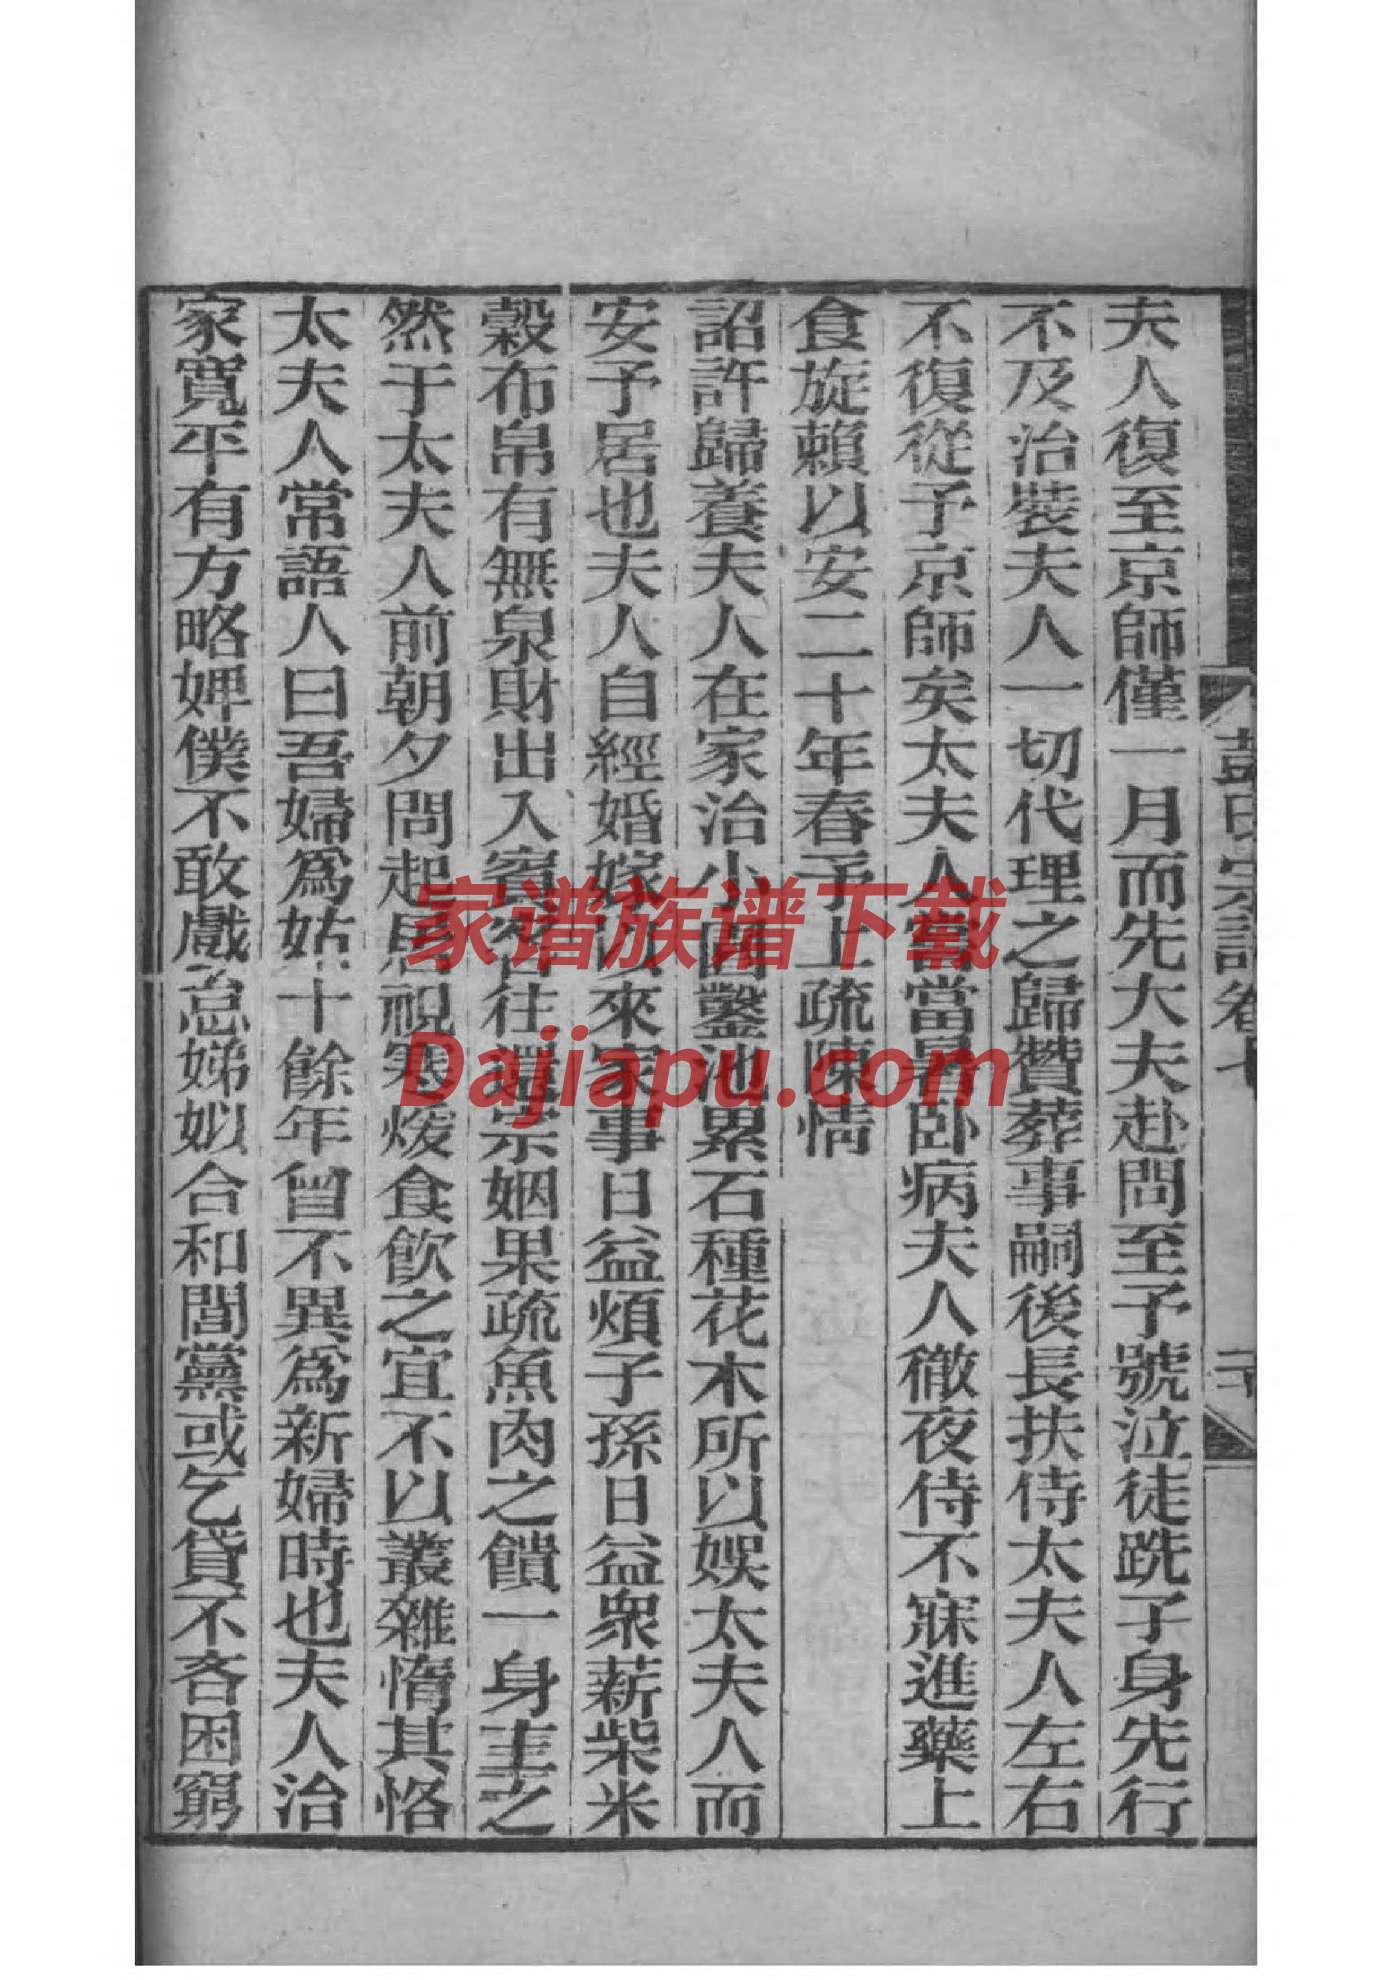 彭氏宗譜卷七
夫人復至京師僅一月而先大夫赴問至予號泣徒跣孑身先行
不及治裝夫人一切代理之歸贊葬事嗣後長扶侍太夫人左右
不復從予京師矣太夫人當當暑卧病夫人徹夜侍不寐進藥上
食旋賴以安二十年春予上疏陳情
詔許歸養夫人在家治小園鑿池累石種花木所以娛太夫人而
安予居也夫人自經婚嫁以來家事日益煩子孫日益衆薪柴米
穀布帛有無泉財出入賓客往還宗姻果疏魚肉之饋一身主之
然于太夫人前朝夕問起居視寒煖食飲之宜不以叢雜惰其恪
太夫人常語人曰吾婦爲姑十餘年曾不異爲新婦時也夫人治
家寬平有方略婢僕不敢戲怠娣姒合和閭黨或乞貸不吝困窮
家谱族谱下载
Dajiapu.com